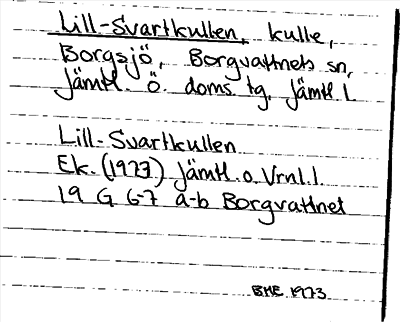 Lill-Svartkullen, kulle,
Borgsjö, Borgvattnets sn,
Jämtl. Ö. doms. tg. Jämtl. l.
Lill-Svartkullen
Ek. (1973) Jämtl. o. Vrnl. l.
19 G 6-7 a-b Borgvattnet
BME 1973